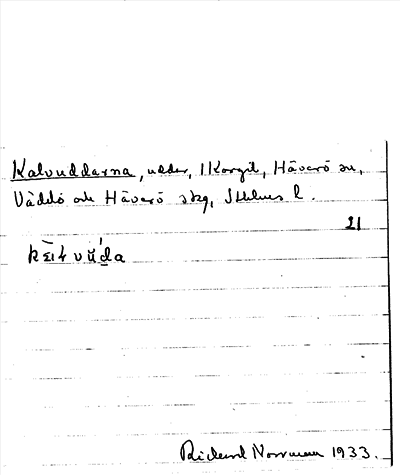 Kalvuddarna, uddar, i Korgil, Häverö sn,
Väddö och Häverö skg, Sthlms l.
21
Rickard Norrman 1933.